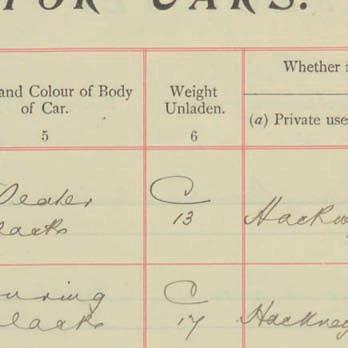 FOR CARS.
and Colour of Body
of Car.
5
Weight
Unladen.
6
Whether i
(a) Private use
eater
lack
C
13
Hackn
ouring
lack
C
17
Hackney